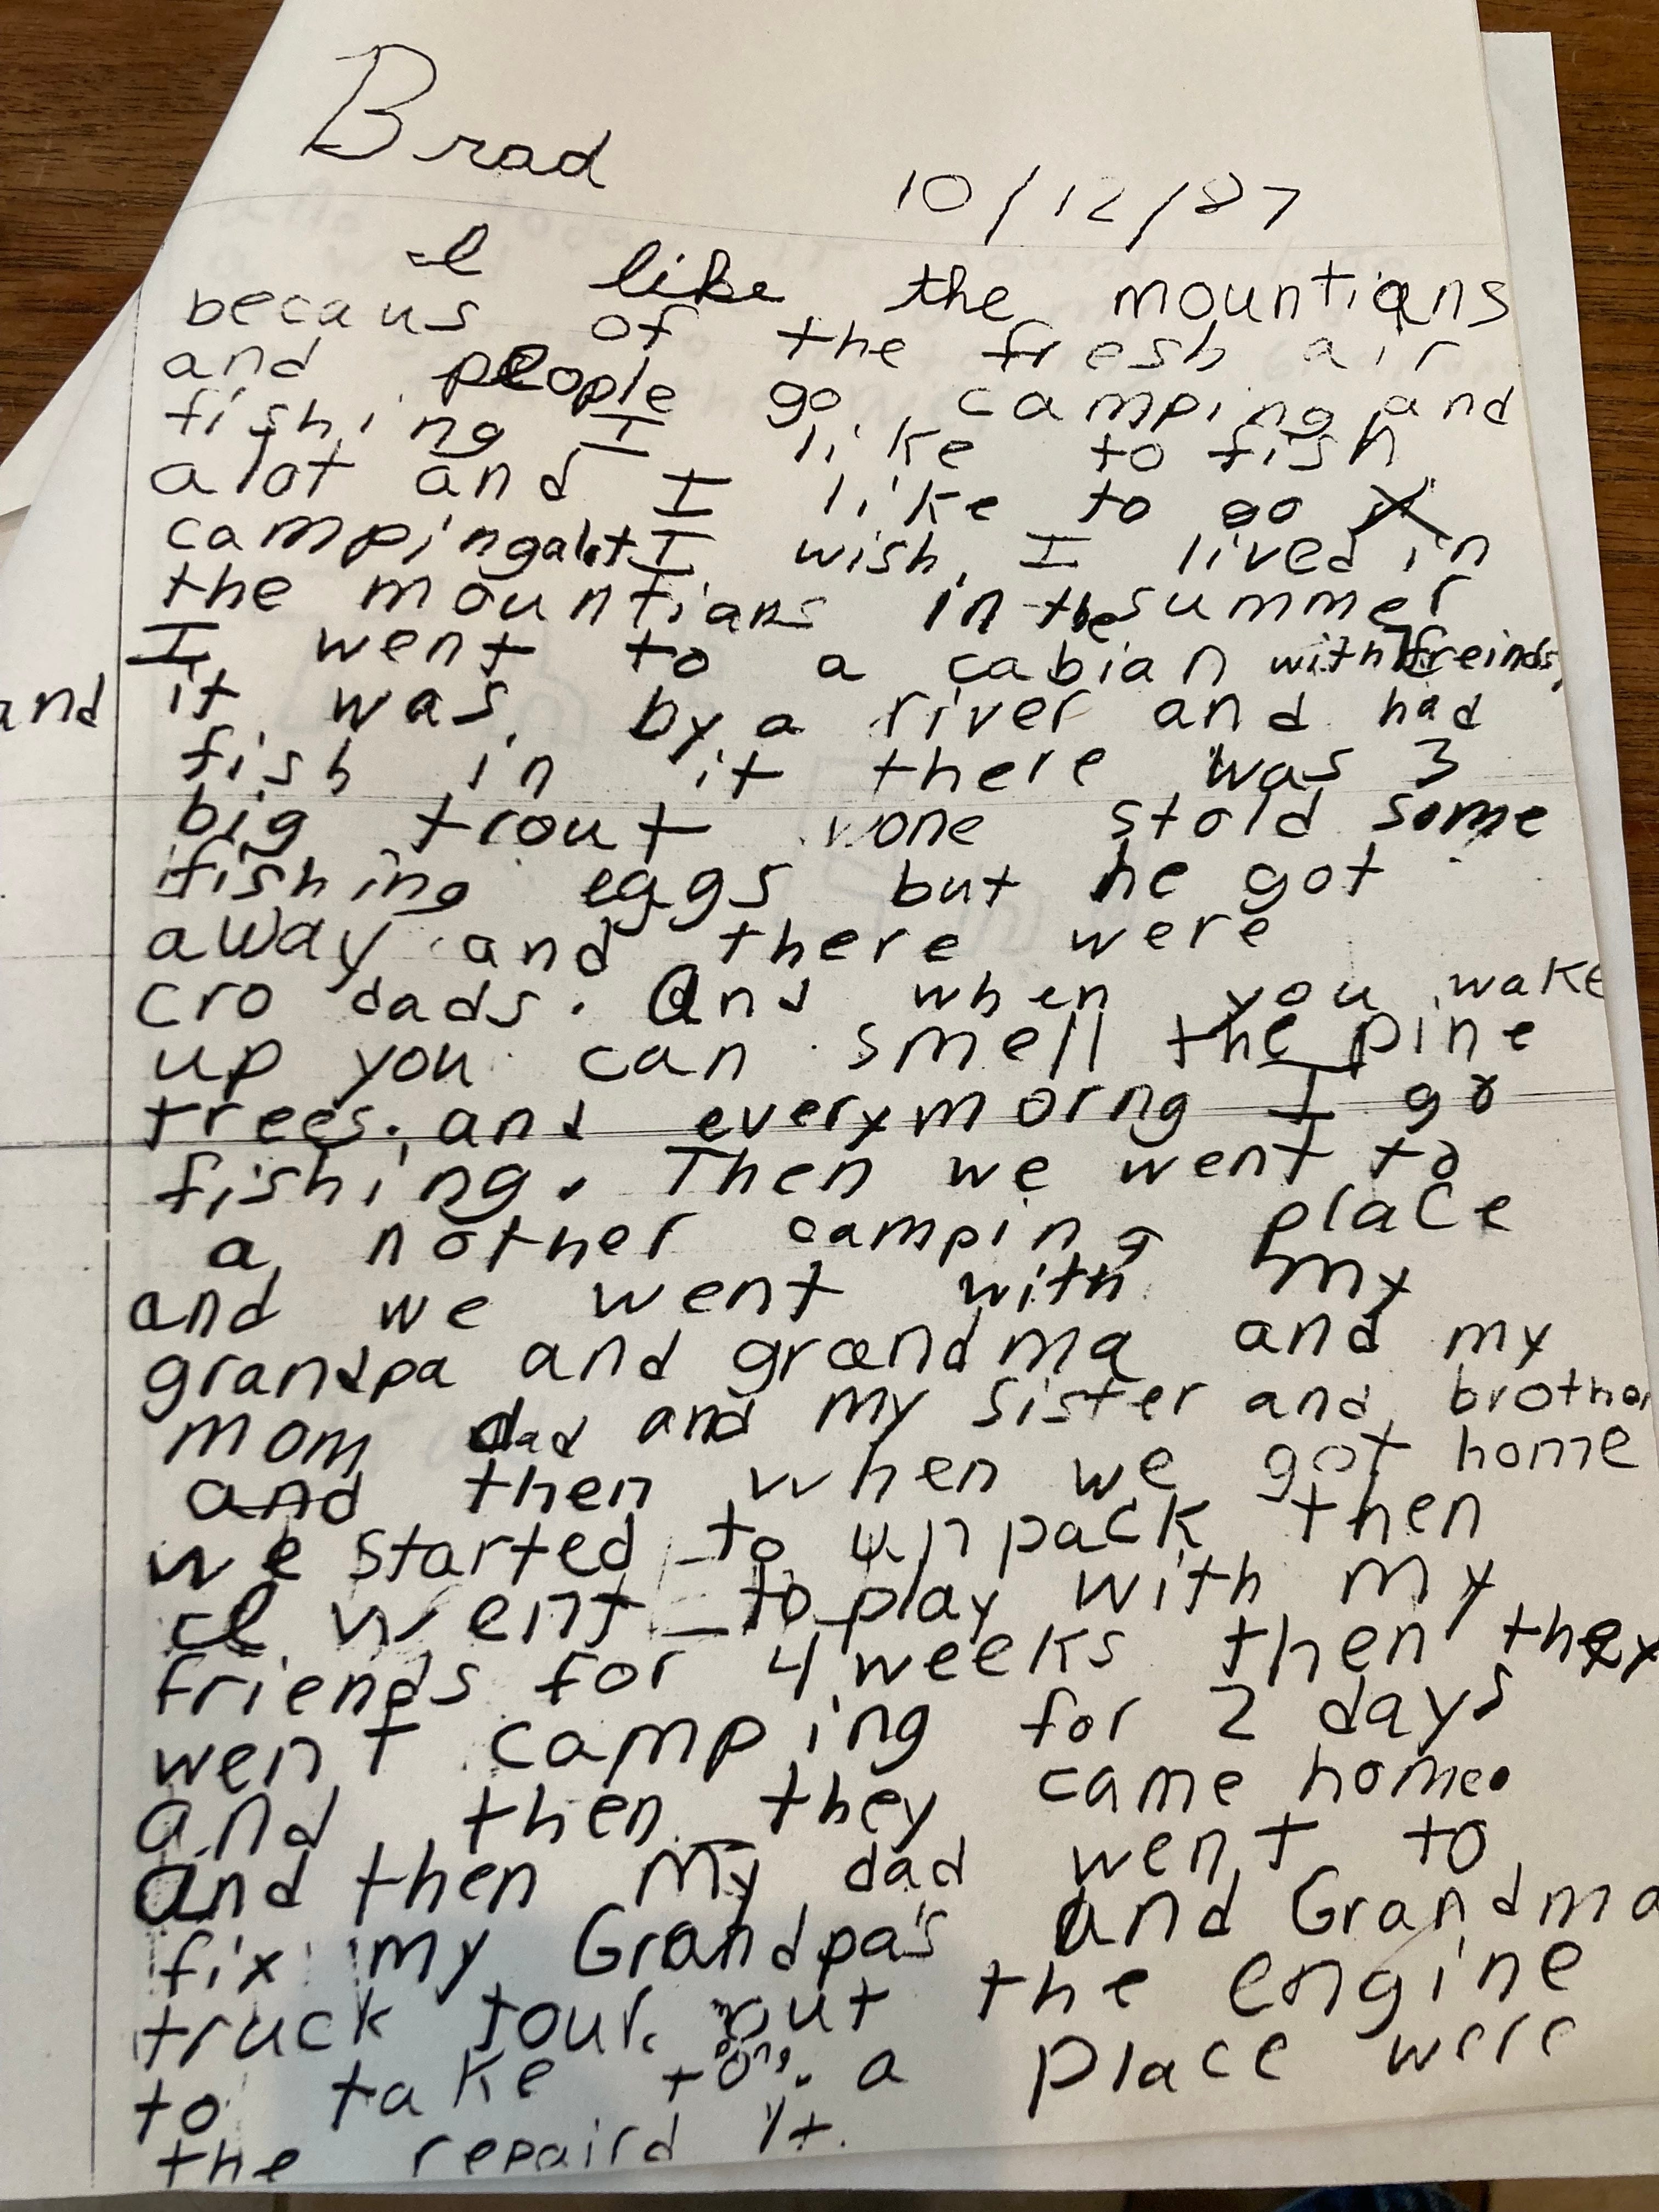 Brad
10/12/87
I like the mountians
becaus of the fresh air
and people go camping and
fishing I like to fish
a lot and I like to go
campingalot I wish I lived in
the mountians in the summer
I went to a cabian with freinds,
and it was by a river and had
fish in it there was 3
big trout one stold some
fishing eggs but he got
away and there were
cro dads. And when you wake
up you can smell the pine
trees. and everymorng I go
fishing. Then we went to
a nother camping place
and we went with my
grandpa and grandma and my
mom dad and my sister and brother
and then when we got home
we started to unpack then
I went to play with my
friends for 4 weeks then they
went camping for 2 days
and then they came home.
And then my dad went to
fix my Grandpa's and Grandma
truck out the engine
to take to a place were
the repaird it.